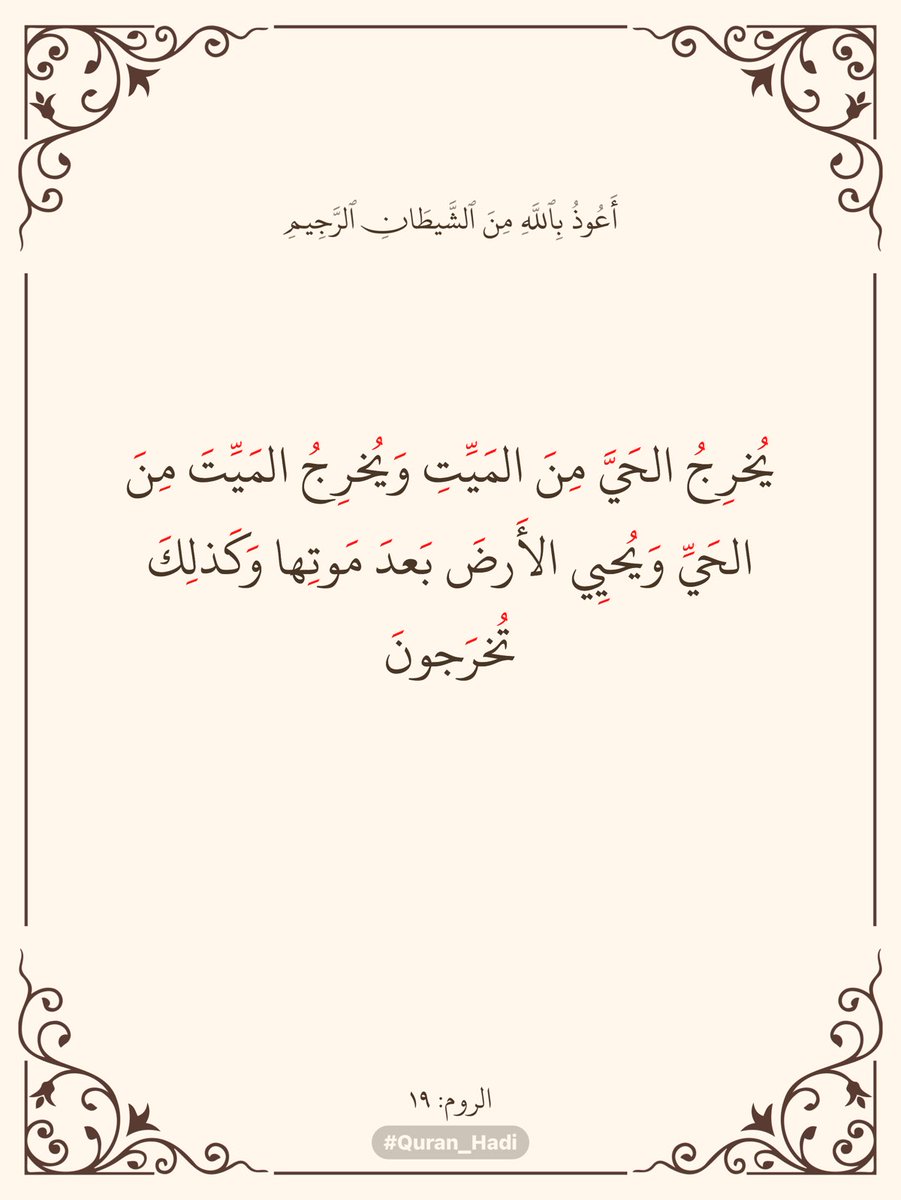 أَعُوذُ بِٱللَّهِ مِنَ ٱلشَّيطَانِ ٱلرَّجِيمِ
يُخرِجُ الحَيَّ مِنَ المَيِّتِ وَيُخرِجُ المَيِّتَ مِنَ
الحَيِّ وَيُحيِي الأَرضَ بَعدَ مَوتِها وَكَذلِكَ
تُخرَجونَ
الروم: ١٩
#Quran_Hadi